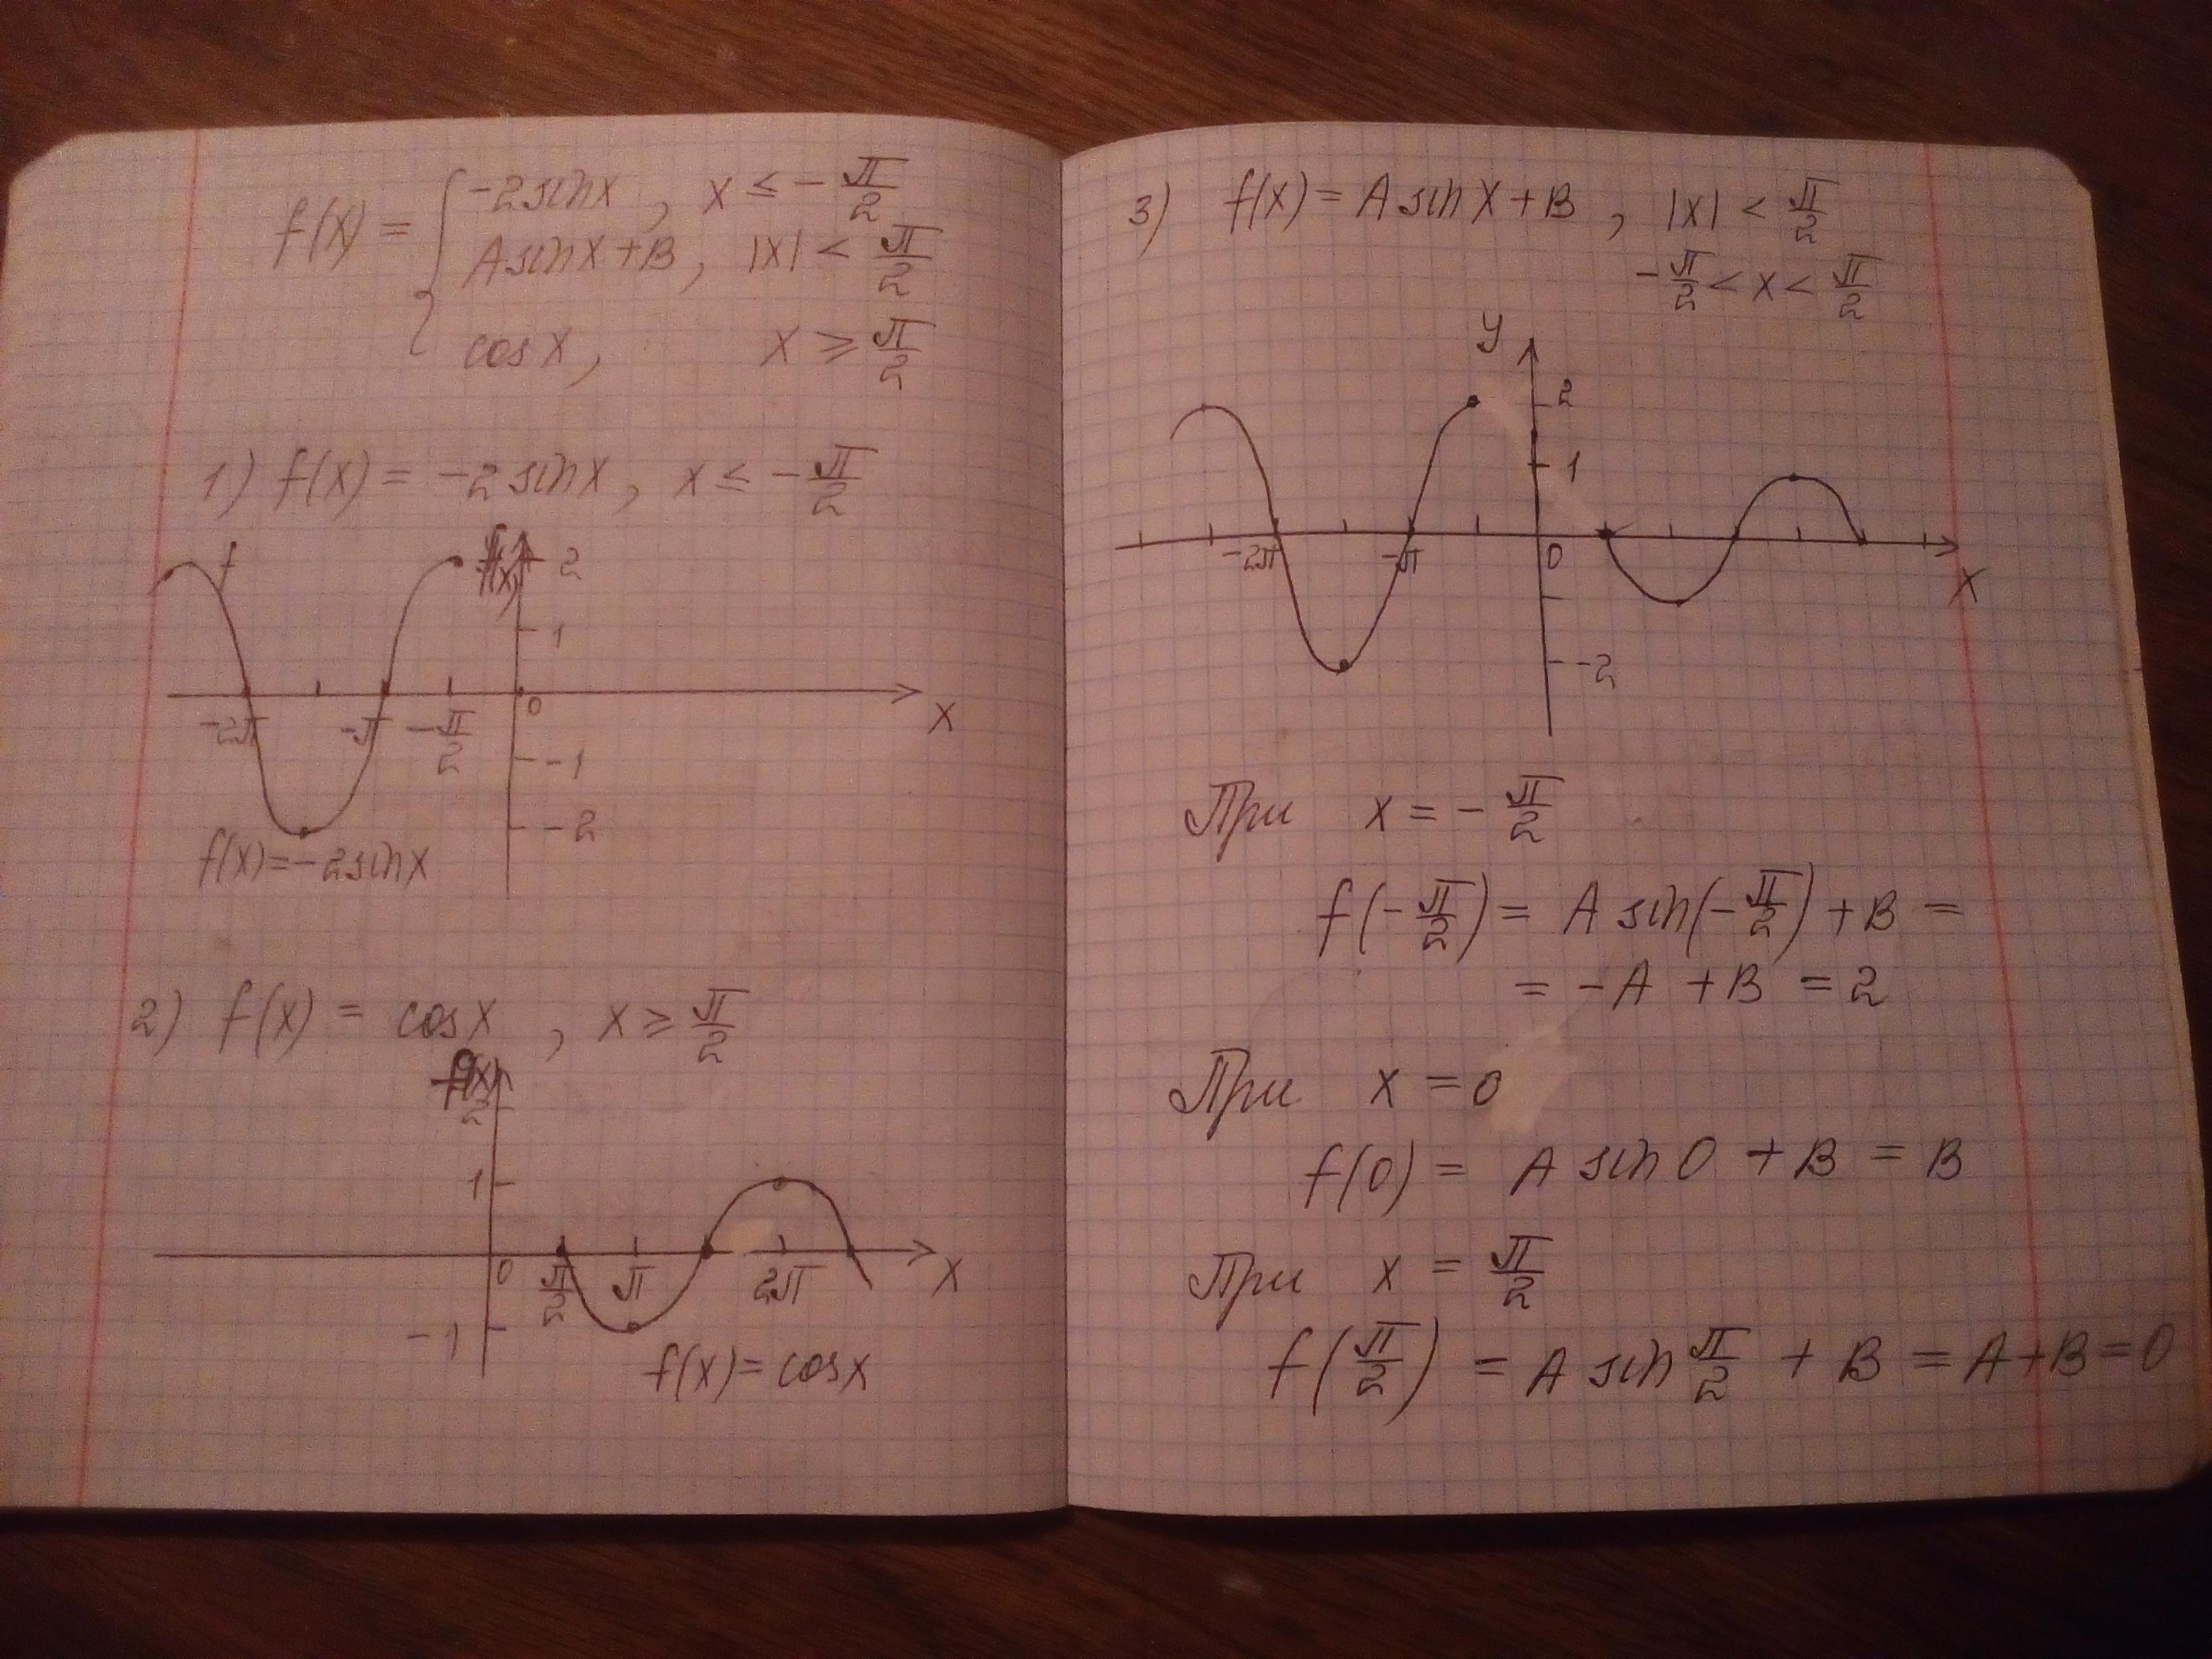 f(x) = { -2sinx , x ≤ -π/2
Asinx+B, |x| < π/2
cosx, x ≥ π/2
1) f(x) = -2sinx, x ≤ -π/2
2
1
-2π -π -π/2 0 x
-1
-2
f(x)=-2sinx
2) f(x) = cosx , x ≥ π/2
f(x)
2
1
0 π/2 π 2π x
-1
f(x)=cosx
3) f(x)= A sinx+B , |x| < π/2
-π/2 < x < π/2
y
2
1
-2π -π 0 x
-2
При x = -π/2
f(-π/2) = A sin(-π/2) + B =
= -A + B = 2
При x = 0
f(0) = A sin0 + B = B
При x = π/2
f(π/2) = A sin π/2 + B = A+B=0